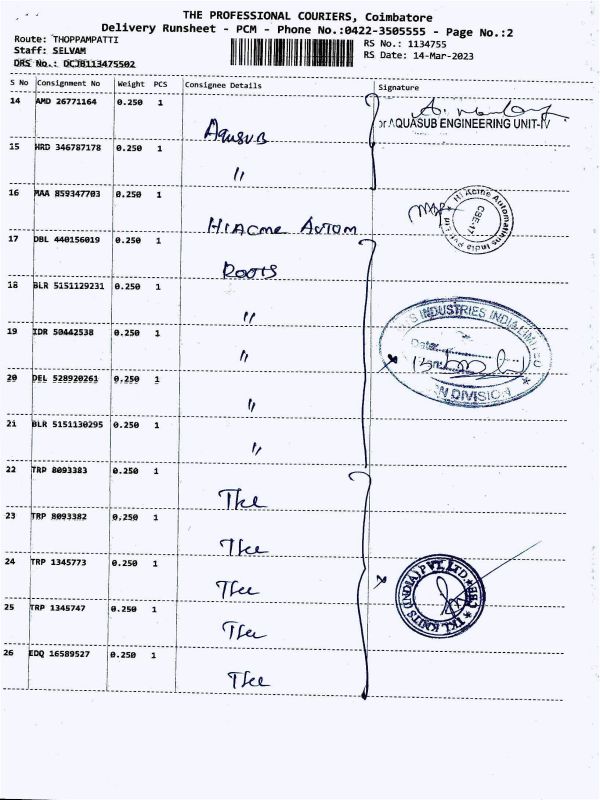 THE PROFESSIONAL COURIERS, Coimbatore
Delivery Runsheet - PCM - Phone No.:0422-3505555 - Page No.:2
Route: THOPPAMPATTI
RS No.: 1134755
Staff: SELVAM
RS Date: 14-Mar-2023
DRS No.: DCJB113475502
S No Consignment No Weight PCS Consignee Details Signature
14 AMD 26771164 0.250 1
Aqusub
or AQUASUB ENGINEERING UNIT-IV
15 HRD 346787178 0.250 1
"
16 MAA 859347703 0.250 1
HiAcme Autom
Hi Acme Automations India Pvt Ltd
CBE-17
17 DBL 440156019 0.250 1
Roots
18 BLR 5151129231 0.250 1
"
INDUSTRIES INDIA LIMITED
Date
N DIVISION
19 IDR 50442538 0.250 1
"
20 DEL 528920261 0.250 1
"
21 BLR 5151130295 0.250 1
"
22 TRP 8093383 0.250 1
Tkl
23 TRP 8093382 0.250 1
Tkl
24 TRP 1345773 0.250 1
Tkl
TKL KNITS (INDIA) PVT. LTD. * CBE *
25 TRP 1345747 0.250 1
Tkl
26 EDQ 16589527 0.250 1
Tkl